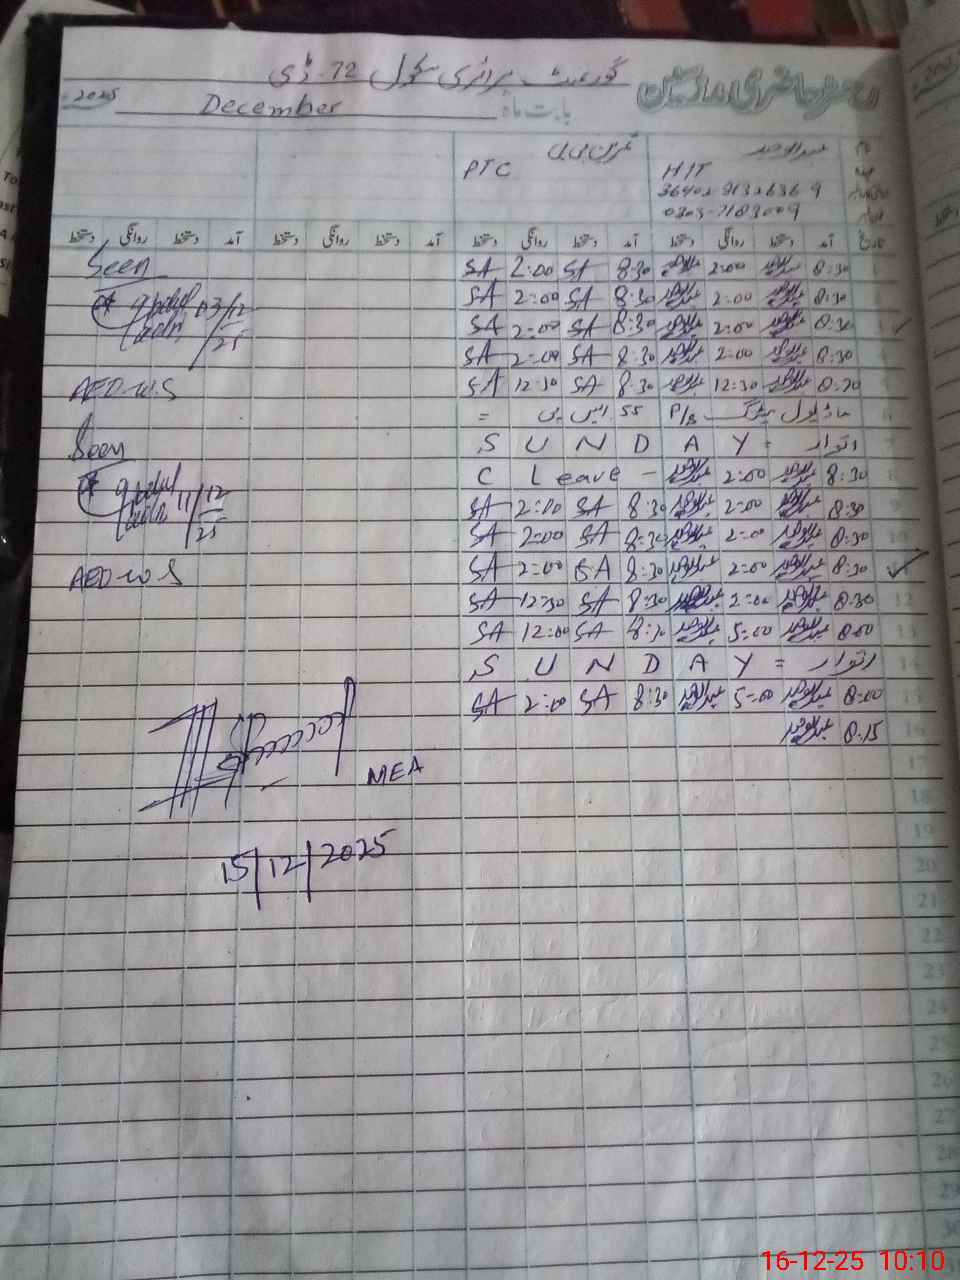 رجسٹر حاضری ملازمین گورنمنٹ پرائمری سکول 72۔ڈی
بابت ماہ December 2025
نام عبدالوحید
HIT PTC
0303-7183009
تاریخ آمد دستخط روانگی دستخط آمد دستخط روانگی دستخط آمد دستخط روانگی دستخط آمد دستخط روانگی دستخط
1 8:30 عبدالوحید 2:00 عبدالوحید 8:30 SA 2:00 SA
2 8:30 عبدالوحید 2:00 عبدالوحید 8:30 SA 2:00 SA
3 8:30 عبدالوحید 2:00 عبدالوحید 8:30 SA 2:00 SA
4 8:30 عبدالوحید 2:00 عبدالوحید 8:30 SA 2:00 SA
5 8:30 عبدالوحید 12:30 عبدالوحید 8:30 SA 12:30 SA
6 P/S 55 =
7 اتوار = S U N D A Y
8 8:30 عبدالوحید 2:00 عبدالوحید C Leave -
9 8:30 عبدالوحید 2:00 عبدالوحید 8:30 SA 2:00 SA
10 8:30 عبدالوحید 2:00 عبدالوحید 8:30 SA 2:00 SA
11 8:30 عبدالوحید 2:00 عبدالوحید 8:30 SA 2:00 SA
12 8:30 عبدالوحید 2:00 عبدالوحید 8:30 SA 12:30 SA
13 8:00 عبدالوحید 5:00 عبدالوحید 8:30 SA 12:00 SA
14 اتوار = S U N D A Y
15 8:00 عبدالوحید 5:00 عبدالوحید 8:30 SA 2:00 SA
16 8:15 عبدالوحید
17
18
19
20
21
22
23
24
25
26
27
28
29
30
Seen
03/12/25
AEO-W.S
Seen
11/12/25
AEO-W.S
MEA
15/12/2025
16-12-25 10:10